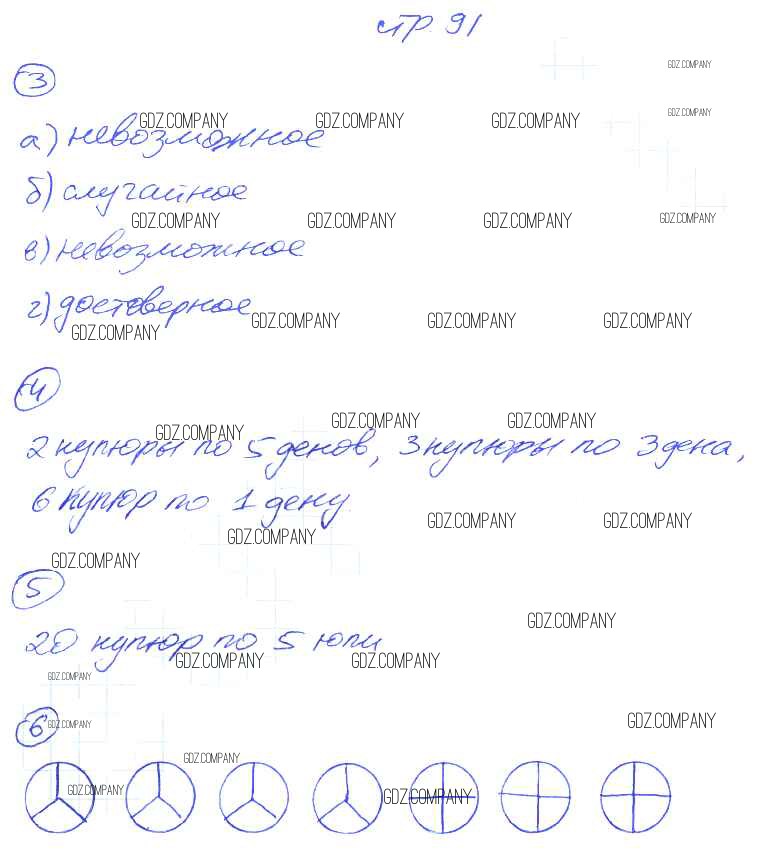 стр 91
GDZ.COMPANY
3
GDZ.COMPANY GDZ.COMPANY GDZ.COMPANY GDZ.COMPANY
а) невозможное
б) случайное
GDZ.COMPANY GDZ.COMPANY GDZ.COMPANY GDZ.COMPANY
в) невозможное
г) достоверное
GDZ.COMPANY GDZ.COMPANY GDZ.COMPANY GDZ.COMPANY
4
GDZ.COMPANY GDZ.COMPANY GDZ.COMPANY
2 купюры по 5 денов, 3 купюры по 3 дена,
6 купюр по 1 дену
GDZ.COMPANY GDZ.COMPANY GDZ.COMPANY
GDZ.COMPANY
5
GDZ.COMPANY
20 купюр по 5 юпи
GDZ.COMPANY GDZ.COMPANY
GDZ.COMPANY
6 GDZ.COMPANY GDZ.COMPANY
GDZ.COMPANY
GDZ.COMPANY GDZ.COMPANY